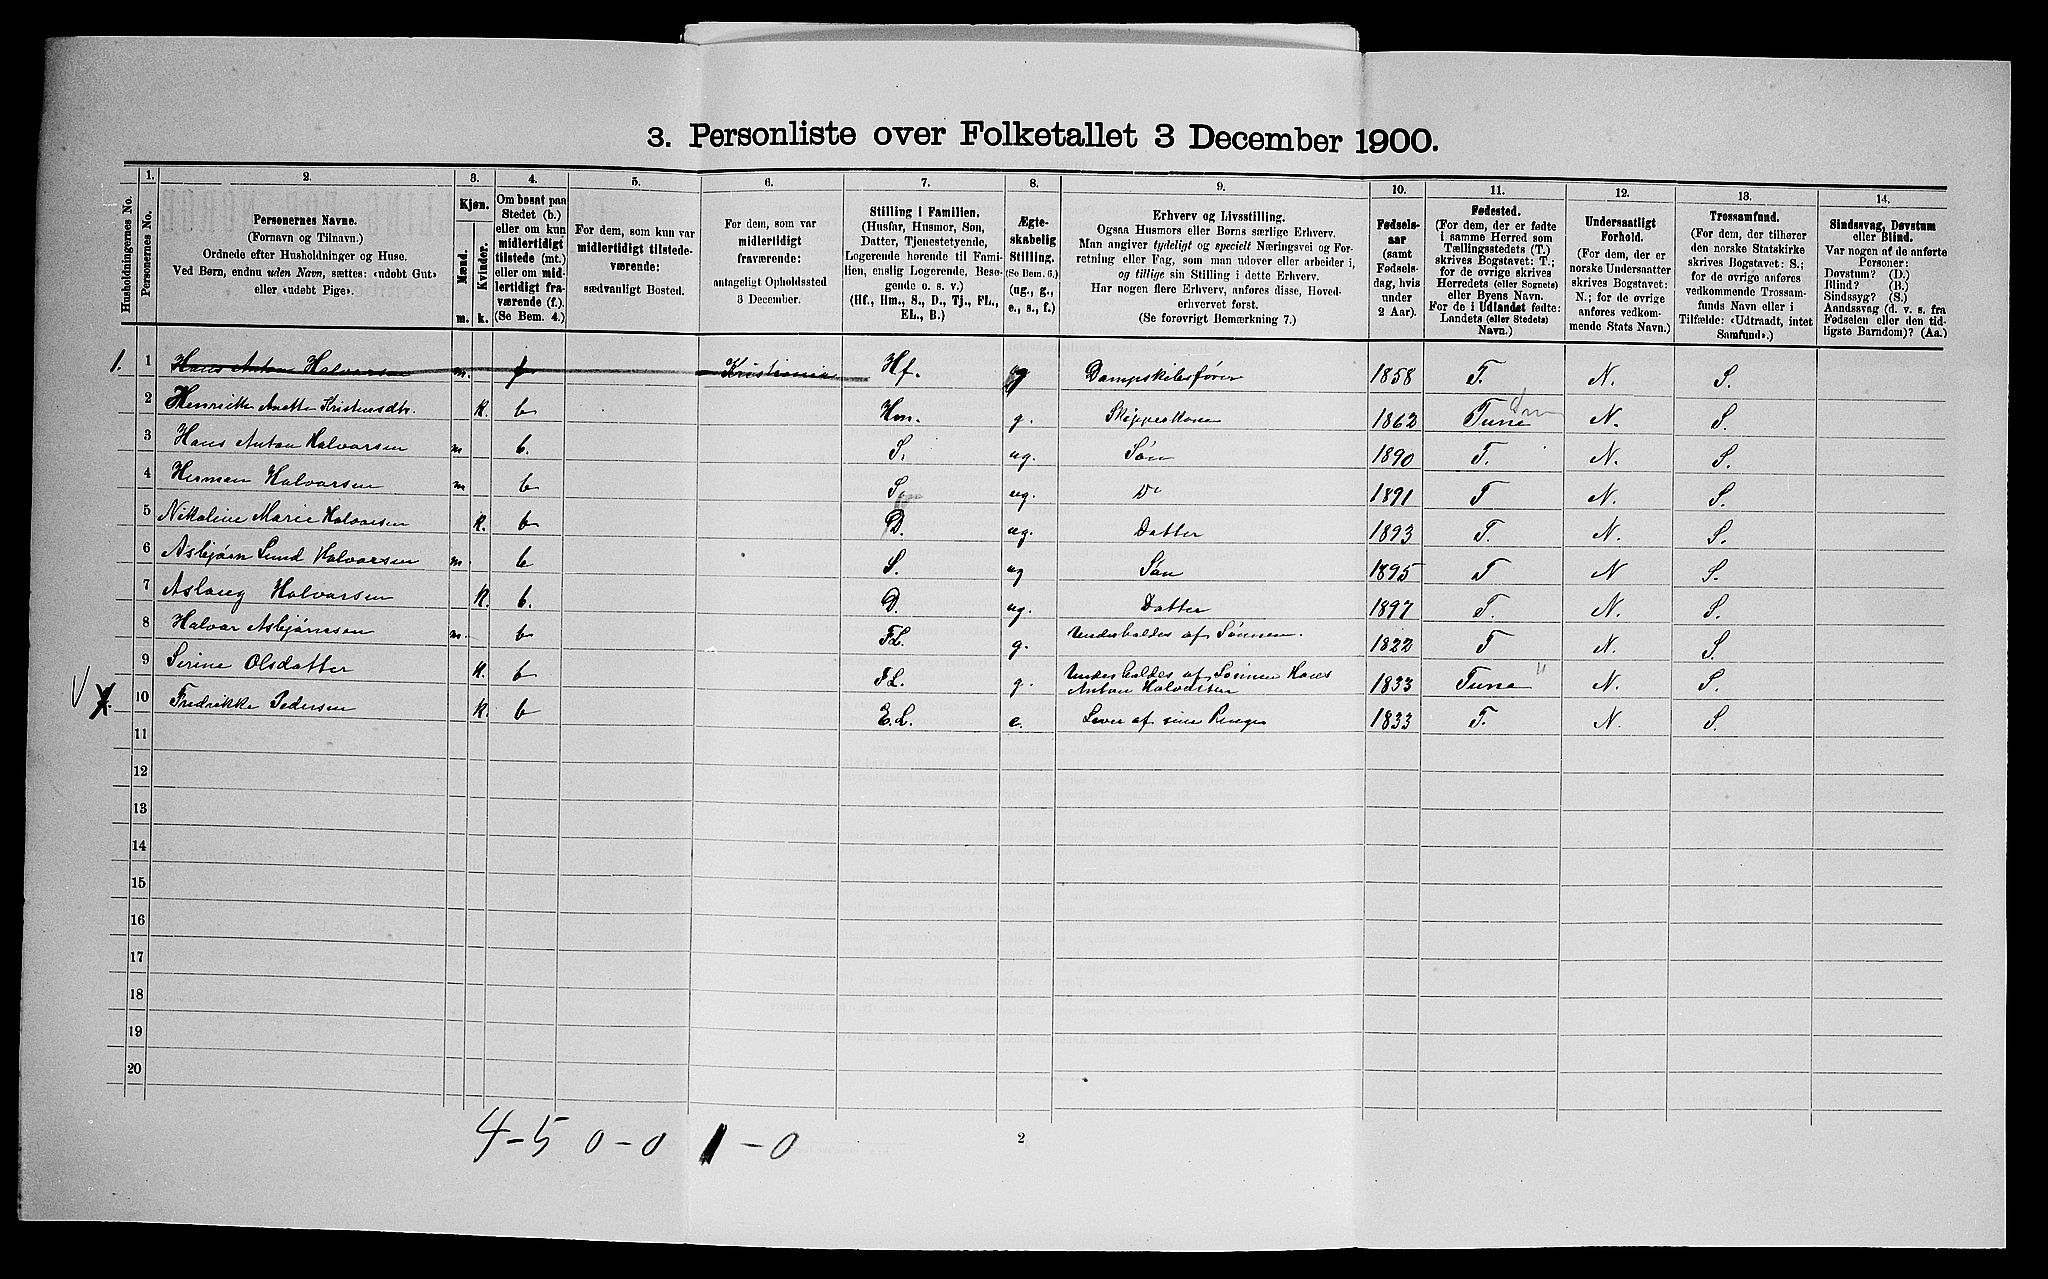 3. Personliste over Folketallet 3 December 1900.
Husholdningernes No.
1.
Personernes No.
2.
Personernes Navne.
(Fornavn og Tilnavn.)
Ordnede efter Husholdninger og Huse.
Ved Børn, endnu uden Navn, sættes: «udøbt Gut»
eller «udøbt Pige».
3.
Kjøn.
Mænd.
Kvinder.
m.
k.
4.
Om bosat paa
Stedet (b.)
eller om kun
midlertidigt
tilstede (mt.)
eller om mid-
lertidigt fra-
værende (f.).
(Se Bem. 4.)
5.
For dem, som kun var
midlertidigt tilstede-
værende:
sædvanligt Bosted.
6.
For dem, som var
midlertidigt
fraværende:
antageligt Opholdssted
3 December.
7.
Stilling i Familien.
(Husfar, Husmor, Søn,
Datter, Tjenestetyende,
Logerende hørende til Fami-
lien, enslig Logerende, Besø-
gende o. s. v.)
(Hf., Hm., S., D., Tj., FL.,
EL., B.)
8.
Ægte-
skabelig
Stilling.
(Se Bem. 6.)
(ug., g.,
e., s., f.)
9.
Erhverv og Livsstilling.
Ogsaa Husmors eller Børns særlige Erhverv.
Man angiver tydeligt og specielt Næringsvei og For-
retning eller Fag, som man udøver eller arbeider i,
og tillige sin Stilling i dette Erhverv.
Har nogen flere Erhverv, anføres disse, Hoved-
erhvervet først.
(Se forøvrigt Bemærkning 7.)
10.
Fødsels-
aar
(samt
Fødsels-
dag, hvis
under
2 Aar).
11.
Fødested.
(For dem, der er fødte
i samme Herred som
Tællingsstedets (T.)
skrives Bogstavet: T.;
for de øvrige skrives
Herredets (eller Sognets)
eller Byens Navn.
For de i Udlandet fødte:
Landets (eller Stedets)
Navn.)
12.
Undersaatligt
Forhold.
(For dem, der er
norske Undersaatter
skrives Bogstavet:
N.; for de øvrige
anføres vedkom-
mende Stats Navn.)
13.
Trossamfund.
(For dem, der tilhører
den norske Statskirke
skrives Bogstavet: S.;
for de øvrige anføres
vedkommende Trossam-
funds Navn eller i
Tilfælde: «Udtraadt, intet
Samfund».)
14.
Sindssvag, Døvstum
eller Blind.
Var nogen af de anførte
Personer:
Døvstum? (D.)
Blind? (B.)
Sindssyg? (S.)
Aandssvag (d. v. s. fra
Fødselen eller den tid-
ligste Barndom)? (Aa.)
1. 1 Hans Anton Halvorsen m. f Kristiania Hf. g Dampskibsfører 1858 T. N. S.
2 Henrikke Anette Kristensdtr. k. b Hm. g. Skipperkone 1862 Tune N. S.
3 Hans Anton Halvorsen m b. S. ug. Søn 1890 T. N. S.
4 Herman Halvorsen m b S. ug. Do 1891 T N. S.
5 Nikoline Marie Halvorsen k. b D. ug. Datter 1893 T. N. S.
6 Asbjørn Lund Halvorsen m. b S. ug Søn 1895 T N S.
7 Aslaug Halvorsen k. b. D. ug. Datter 1897 T. N. S.
8 Halvor Asbjørnsen m. b FL. g. Underholdes af Sønnen. 1822 T N. S.
9 Serine Olsdatter k. b FL. g. Underholdes af Sønnen Hans
Anton Halvorsen 1833 Tune " N. S.
10 Fredrikke Pedersen k. b E.L. e. Lever af sine Penge 1833 T. N. S.
11
12
13
14
15
16
17
18
19
20
4-5 0-0 1-0
2